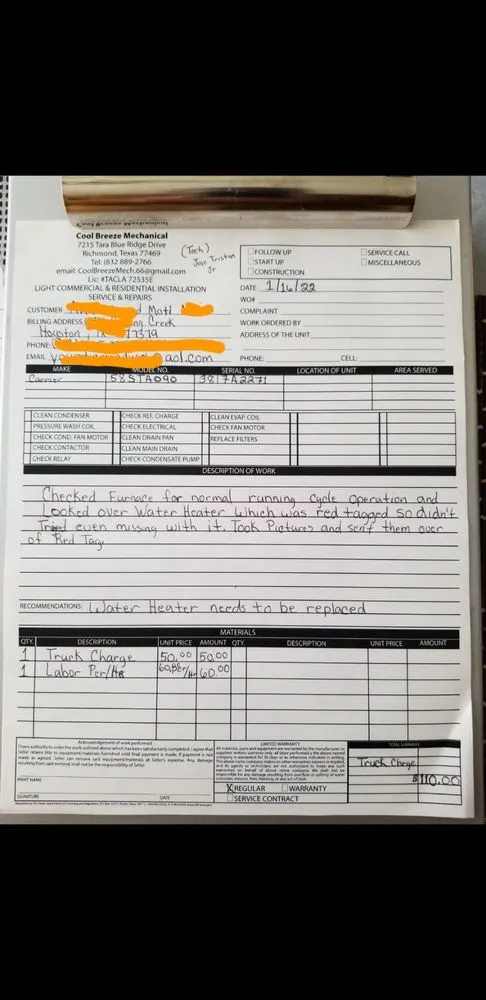 Cool Breeze Mechanical
7215 Tara Blue Ridge Drive
Richmond, Texas 77469
Tel: (832 889-2766
email: CoolBreezeMech.66@gmail.com
Lic: #TACLA 72535E
LIGHT COMMERCIAL & RESIDENTIAL INSTALLATION
SERVICE & REPAIRS
(Tech)
Jose Tristan
Jr
FOLLOW UP SERVICE CALL
START UP MISCELLANEOUS
CONSTRUCTION
DATE 1/16/22
WO#
COMPLAINT
WORK ORDERED BY
ADDRESS OF THE UNIT
PHONE: CELL:
CUSTOMER d Mott
BILLING ADDRESS ing Creek
Houston, 77379
PHONE:
EMAIL aol.com
MAKE MODEL NO. SERIAL NO. LOCATION OF UNIT AREA SERVED
Carrier 58STA090 3817A2271
CLEAN CONDENSER CHECK REF. CHARGE CLEAN EVAP. COIL
PRESSURE WASH COIL CHECK ELECTRICAL CHECK FAN MOTOR
CHECK COND. FAN MOTOR CLEAN DRAIN PAN REPLACE FILTERS
CHECK CONTACTOR CLEAN MAIN DRAIN
CHECK RELAY CHECK CONDENSATE PUMP
DESCRIPTION OF WORK
Checked Furnace for normal running cycle operation and
Looked over Water Heater which was red tagged so didn't
Tried even missing with it. Took Pictures and sent them over
of Red Tag
RECOMMENDATIONS: Water Heater needs to be replaced
MATERIALS
QTY. DESCRIPTION UNIT PRICE AMOUNT QTY. DESCRIPTION UNIT PRICE AMOUNT
1 Truck Charge 50.00 50.00
1 Labor Per/Hr 60.00
Acknowledgement of work performed
LIMITED WARRANTY
TOTAL SUMMARY
Truck Charge
$110.00
PRINT NAME
SIGNATURE DATE
X REGULAR WARRANTY
SERVICE CONTRACT